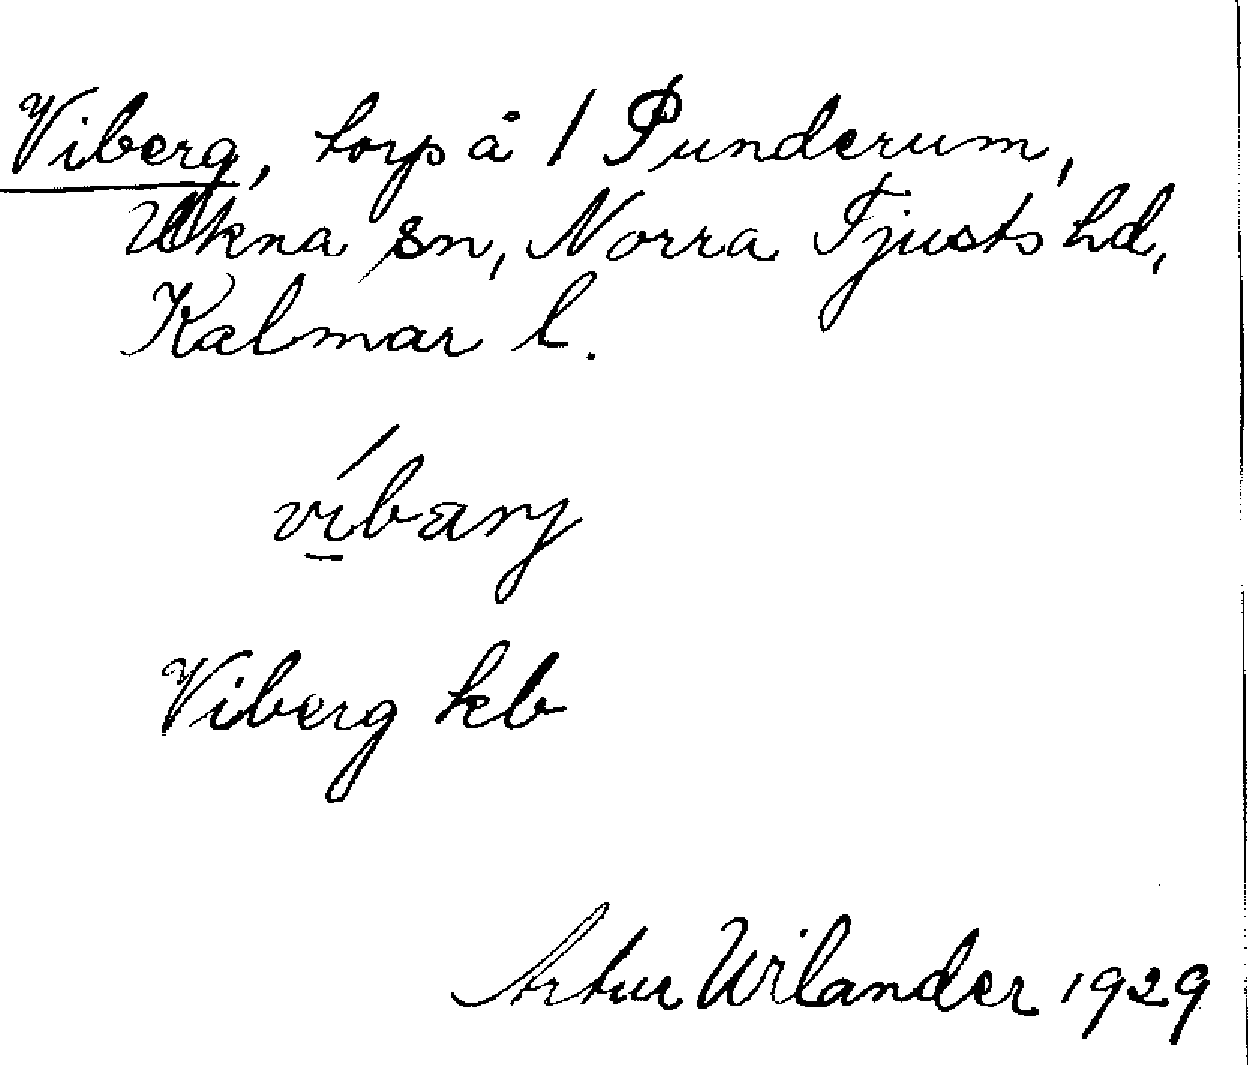 Viberg, torp å 1 Punderum,
Ukna sn, Norra Tjusts hd,
Kalmar l.
ví̲bærj
Viberg kb
Artur Wilander 1929